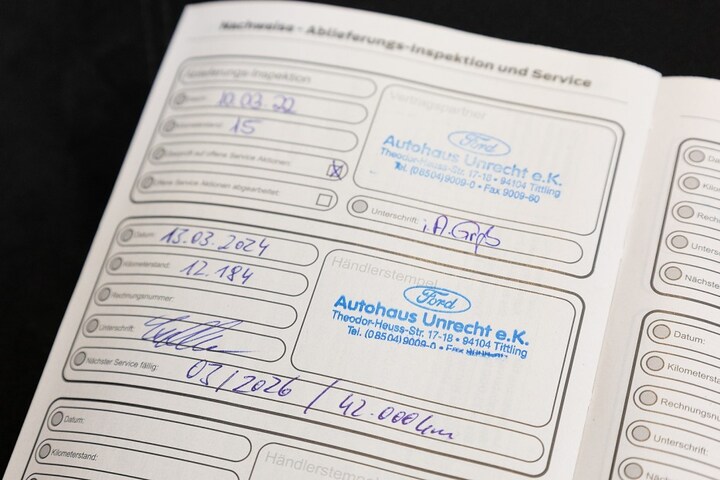 Nachweise - Ablieferungs-Inspektion und Service
Ablieferungs-Inspektion
10.03.22
15
Service Aktionen
Service Aktionen abgearbeitet:
Vertragspartner
Ford
Autohaus Unrecht e.K.
Theodor-Heuss-Str. 17-18 • 94104 Tittling
Tel. (08504)9009-0 • Fax 9009-60
Unterschrift: i.A.
Datum: 13.03.2024
Kilometerstand: 12.184
Rechnungsnummer:
Unterschrift:
Nächster Service fällig: 03/2026 / 42.000km
Händlerstempel
Ford
Autohaus Unrecht e.K.
Theodor-Heuss-Str. 17-18 • 94104 Tittling
Tel. (08504)9009-0 • Fax
Datum:
Kilometerstand:
Händlerstempel
Da
Kilom
Rech
Unters
Nächste
Datum:
Kilometersta
Rechnungsnu
Unterschrift:
Nächster